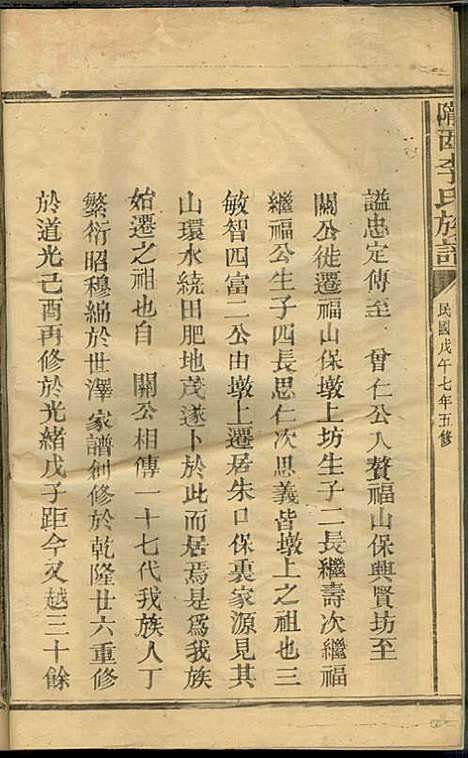 隴西李氏族譜
民國戊午七年五修
諡忠定傳至 曾仁公入贅福山保興賢坊至
關公徙遷福山保墩上坊生子二長繼壽次繼福
繼福公生子四長思仁次思義皆墩上之祖也三
敏智四富二公由墩上遷居朱口保裏家源見其
山環水繞田肥地茂遂卜於此而居焉是爲我族
始遷之祖也自 關公相傳一十七代我族人丁
繁衍昭穆綿於世澤家譜創修於乾隆廿六重修
於道光己酉再修於光緒戊子距今又越三十餘